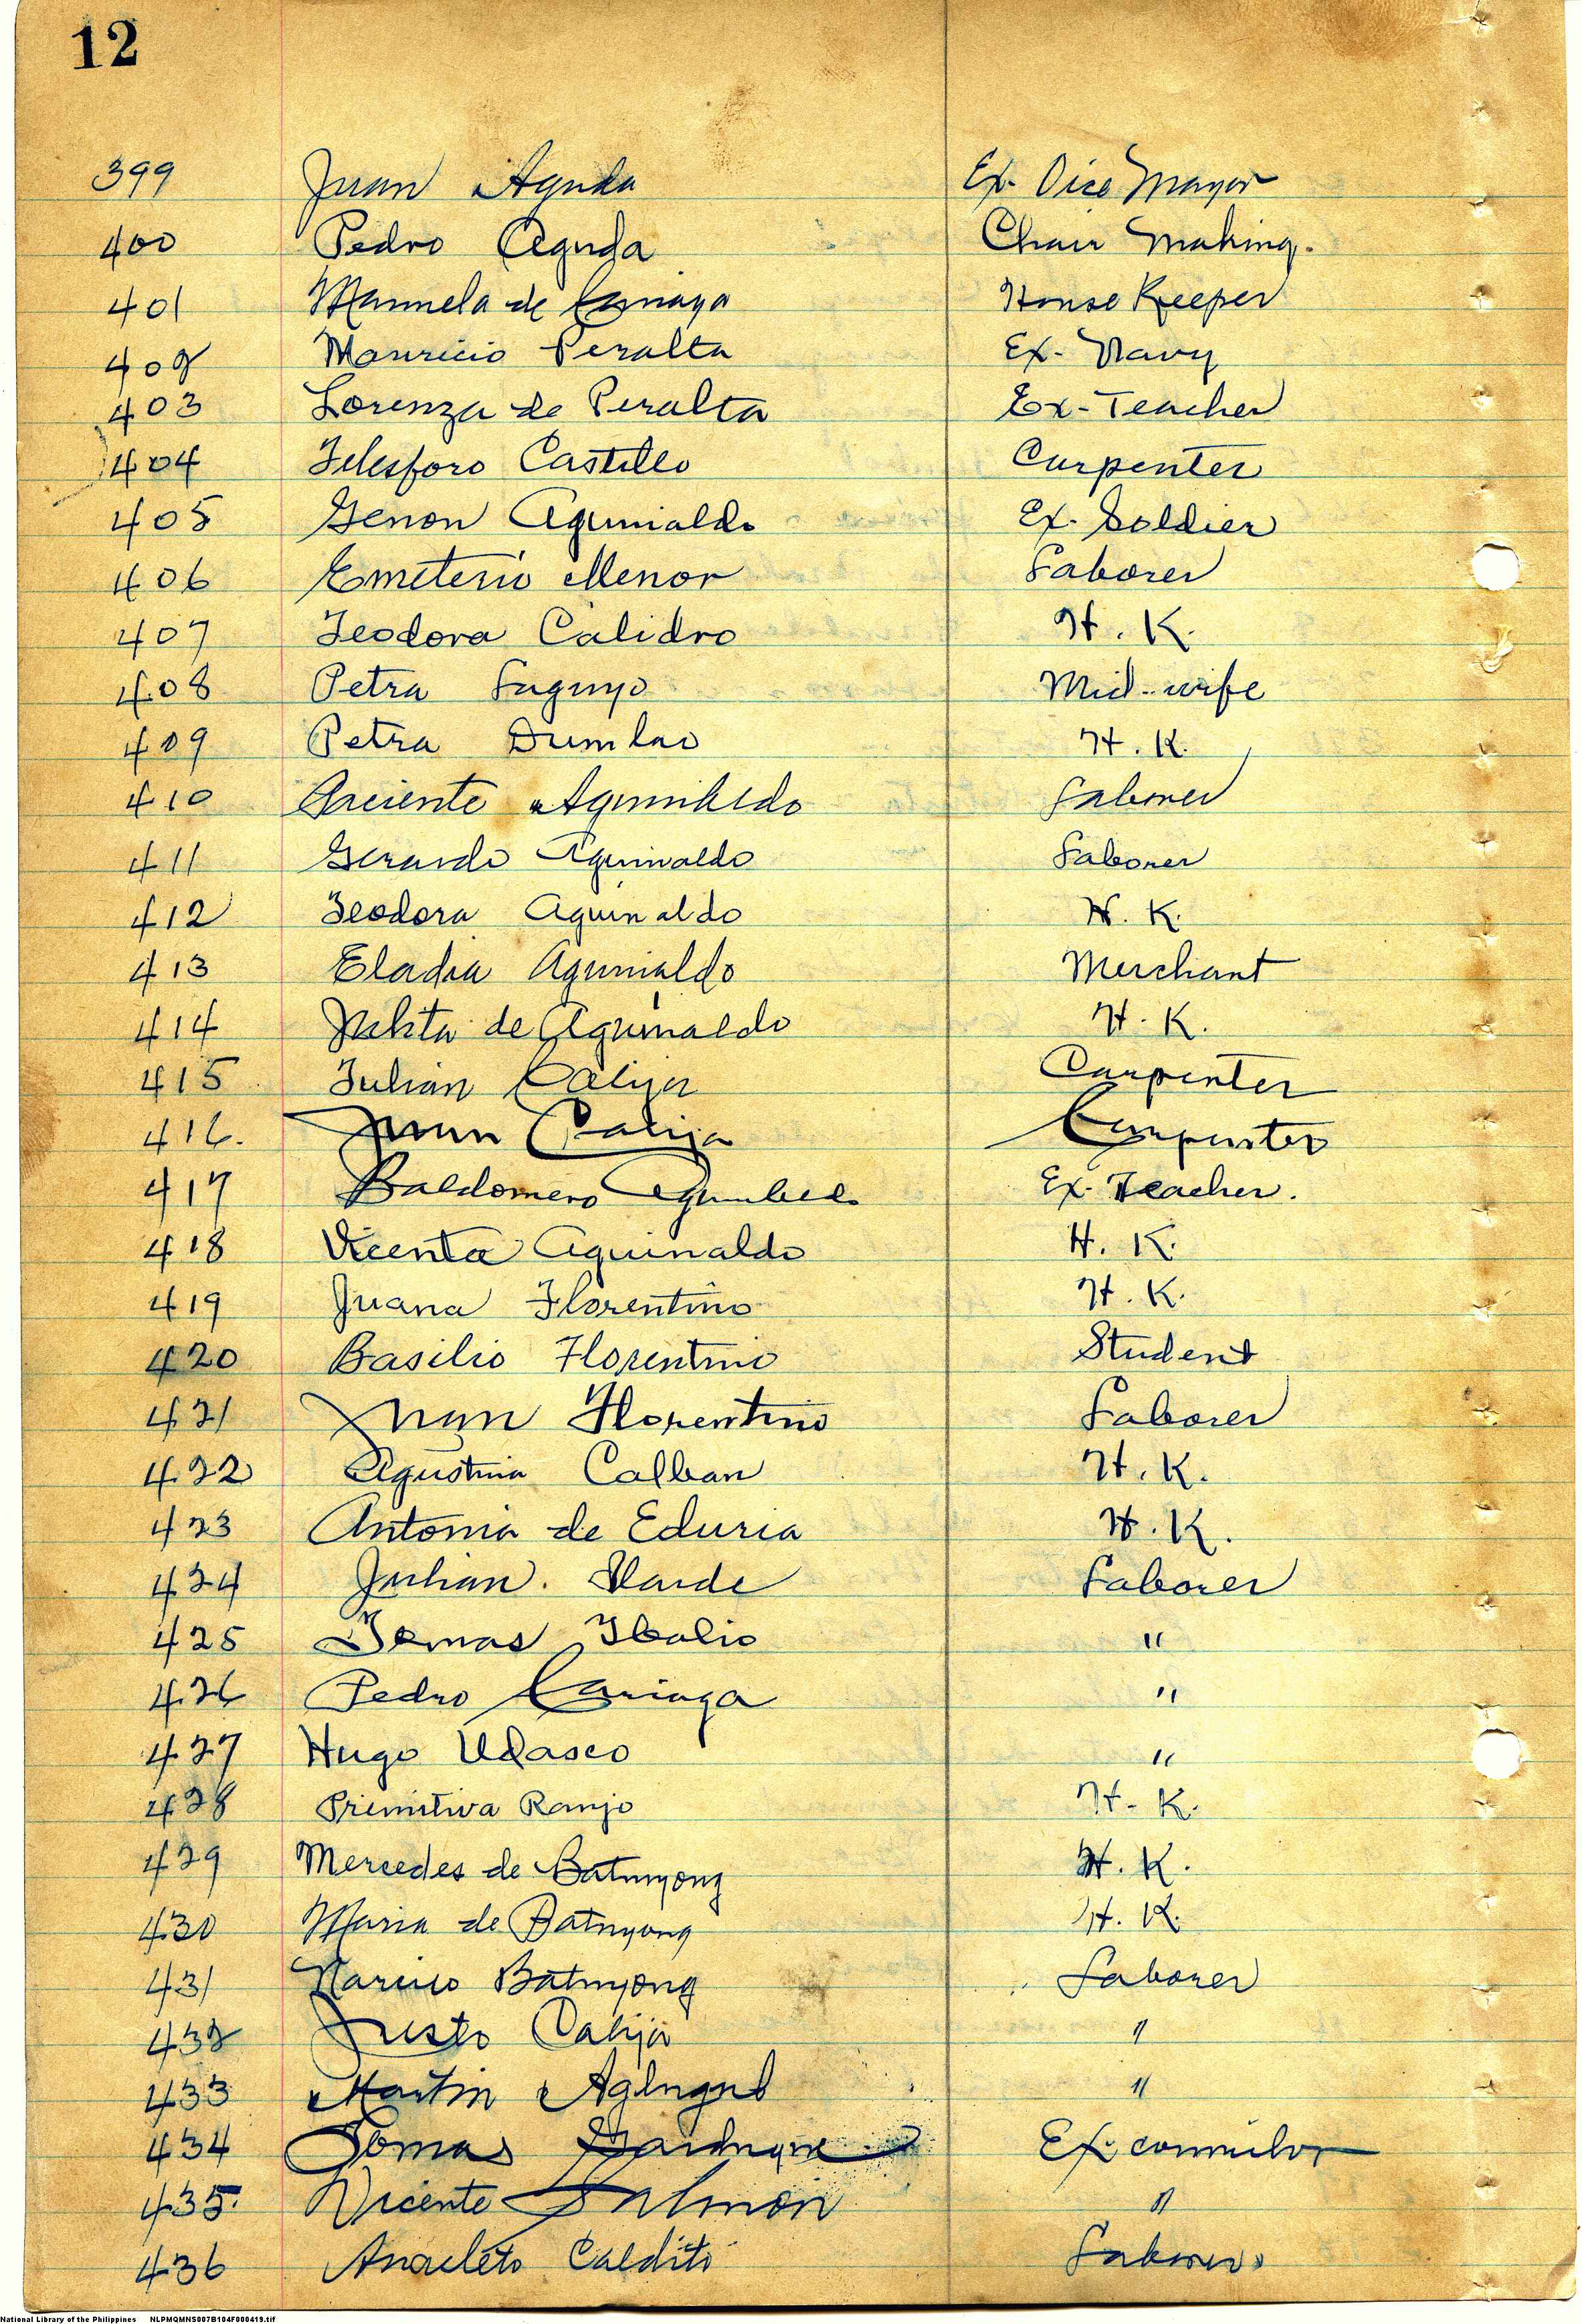 12
399 Juan Aguda Ex- Vice Mayor
400 Pedro Aguda Chair Making.
401 Manuela de Cariaga House Keeper
402 Mauricio Peralta Ex- Navy
403 Lorenza de Peralta Ex-Teacher
404 Telesforo Castillo Carpenter
405 Genon Aguinaldo Ex- Soldier
406 Emeterio Menor Laborer
407 Teodora Calidro H. K.
408 Petra Mid-wife
409 Petra Dumlao H. K.
410 Laborer
411 Gerardo Aguinaldo Laborer
412 Teodora Aguinaldo H. K.
413 Eladia Aguinaldo Merchant
414 de Aguinaldo H. K.
415 Julian Calija Carpenter
416. Juan Calija Carpenter
417 Baldomero Aguinaldo Ex-Teacher.
418 Vicenta Aguinaldo H. K.
419 Juana Florentino H. K.
420 Basilio Florentino Student
421 Juan Florentino Laborer
422 Agustina Calban H. K.
423 Antonia de Eduria H. K.
424 Julian. Laborer
425 Tomas Ibalio "
426 Pedro Cariaga "
427 Hugo Velasco "
428 Primitiva Ranjo H- K.
429 Mercedes de Batuyong H. K.
430 Maria de Batuyong H. K.
431 Narciso Batuyong Laborer
432 Justo Calija "
433 Martin Aglugub "
434 Tomas Ex-councilor
435. Vicente Salmon "
436 Anacleto Caldito Laborer
National Library of the Philippines NLPMQMNS007B104F000419.tif